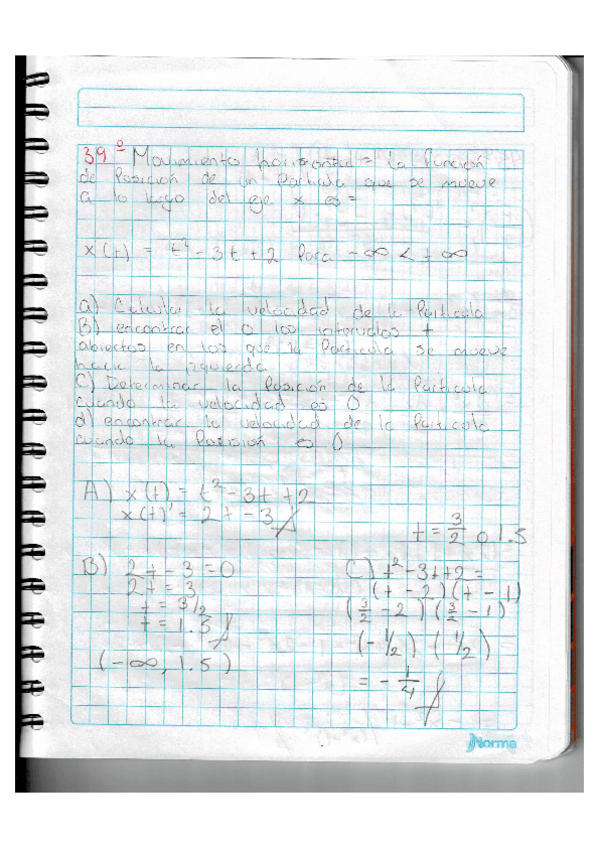 39º Movimiento horizontal = la función
de Posición de un Particula que se mueve
a lo largo del eje x es =
x(t) = t² - 3t + 2 Para -∞ < t ∞
a) Calcular la velocidad de la Particula
B) encontrar el o los intervalos t
abiertos en los que la Particula se mueve
hacia la izquierda
C) Determinar la Posición de la Particula
cuando la velocidad es 0
d) encontrar la velocidad de la Particula
cuando la Posisión es 0
A) x(t) = t² - 3t + 2
x(t)' = 2t - 3
t = 3/2 o 1.5
B) 2t - 3 = 0
2t = 3
t = 3/2
t = 1.5
(-∞, 1.5)
C) t² - 3t + 2 =
(t - 2) (t - 1)
(3/2 - 2) (3/2 - 1)
(-1/2) (1/2)
= - 1/4
Norma